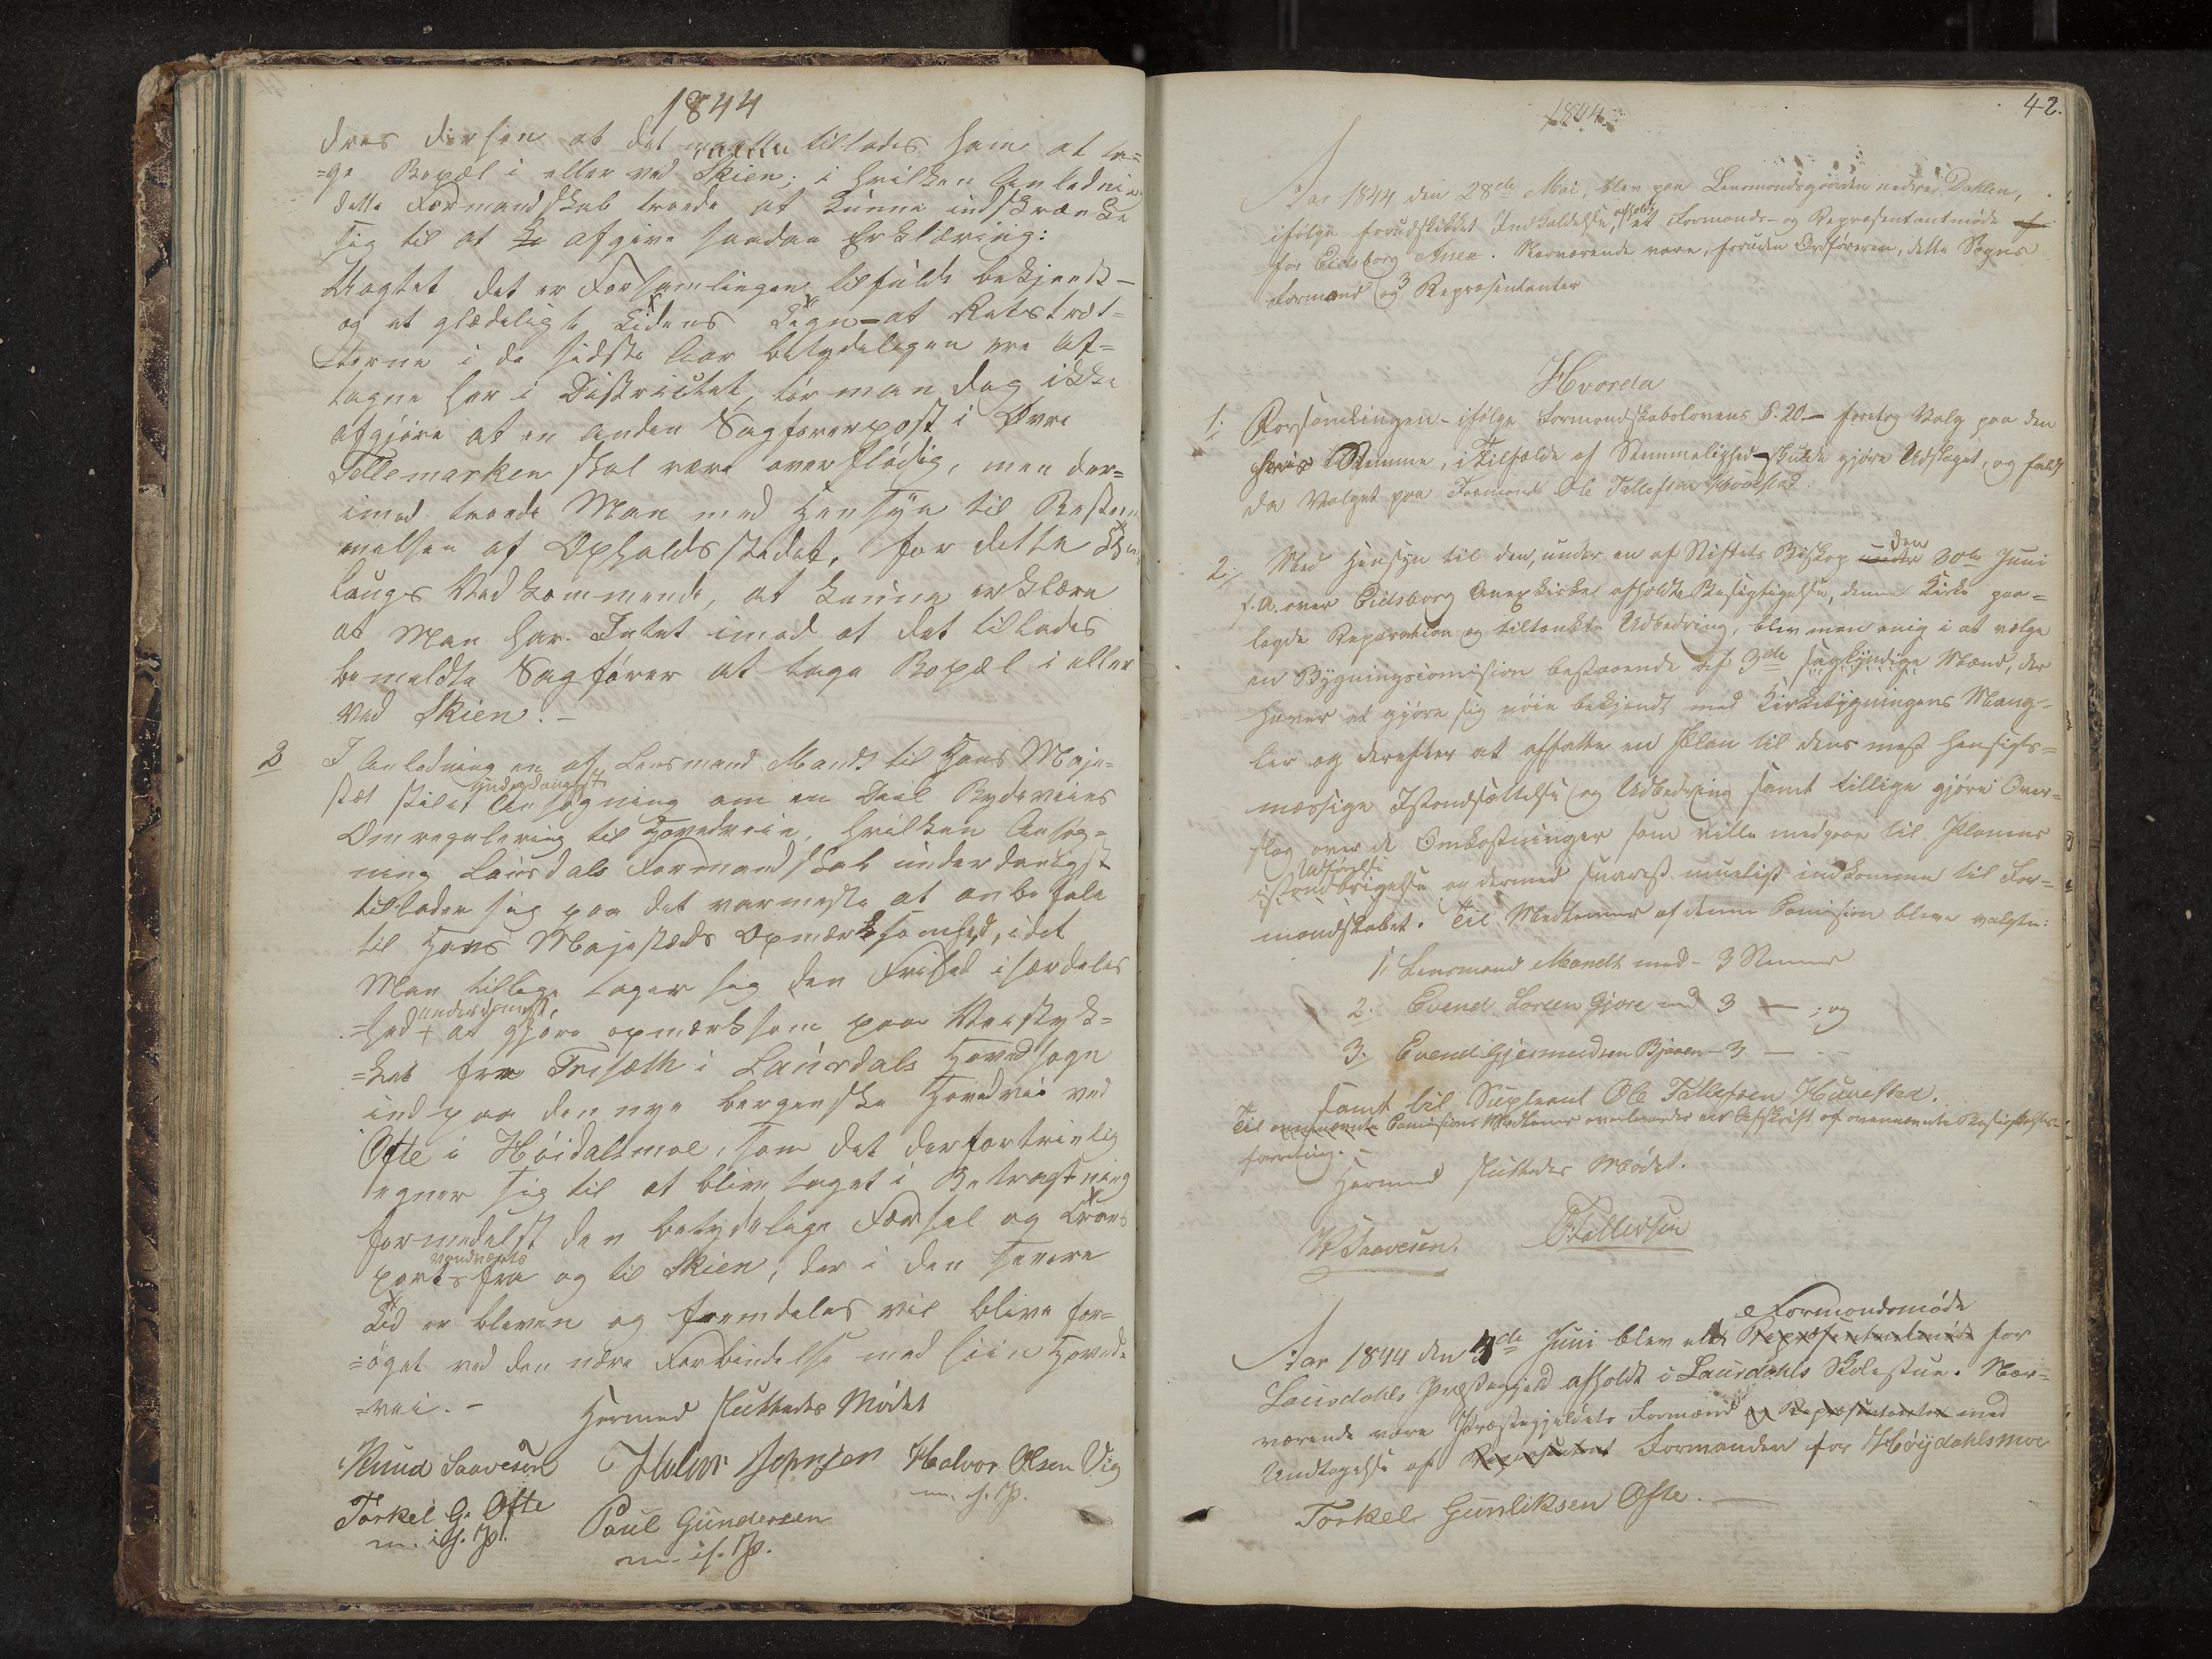 1844
dres dersen at det maatte tillades ham at ta=
=ge Bopæl i eller ved Skien; i hvilken Anledning
dette Formandskab troede at kunne indskrænke
sig til at afgive saadan Erklæring:
Uagtet det er Forsamlingen tilfulde bekjendt -
og et glædeligt Tidens Tegn - at Retstræt=
terne i de sidste Aar betydeligen ere af=
tagne her i Districtet, tør man dog ikke
afgjøre at en anden Sagførerpost i Øvre
Tellemarken skal være overflødig, men der=
imod troede Man med Hensyn til Bestem
melsen af Opholdsstedet, for dette
laugs Vedkommende, at kunne erklære
at Man har Intet imod at det tillades
bemeldte Sagfører at tage Bopæl i eller
ved Skien. -
2 I Anledning en af Lensmand Mandt til Hans Maje=
underdanigst
stæt stilet Ansøgning om en Deel Bydeveies
Omregulering til Hovedveie, hvilken Ansøg=
ning Laurdals Formandskab underdanigst
tillader sig paa det varmeste at anbefale
til Hans Majestæts Opmærksomhed, idet
Man tillige tager sig den Frihed isærdeles
underdanigst
=hed + at gjøre opmærksom paa Veistyk=
=ket fra Trisæth i Laurdals Hovedsogn
ind paa den nye bergenske Hovedvei ved
Ofte i Høidalsmoe, som det der fortrinlig
egner sig til at blive taget i Betragtning
formedelst den betydelige Færsel og Trans
port fra og til Skien, der i den senere
Tid er bleven og fremdeles vil blive for=
=øget ved den nære Forbindelse med siin Hoved=
=vei. -
Hermed sluttedes Mødet
Knud Saavesen Halvor Johnsen Halvor Olsen Vig
m. i. P.
Torkel G. Ofte Paul Gundersen
m. i. P. m. i. P.
42.
1844
Aar 1844 den 28de Mai, blev paa Lensmandsgaarden nedre Dahlen,
afholdt
ifølge forudskikket Indkaldelse, et Formands- og Repræsentantmøde af
for Eidsborg Anex. Nærværende vare, foruden Ordføreren, dette Sogns
Formænd og 3 Repræsentanter
Hvorda
1. Forsamlingen - ifølge Formandskabslovens §. 20 - foretog Valg paa den
hvis Stemme, i Tilfælde af Stemmelighed skulde gjøre Udslaget, og faldt
da Valget paa Formand Ole Tallefsen Huvestad.
den
2. Med Hensyn til den, under en af Stiftets Biskop under 30te Juni
f. A. over Eidsborg Anexkirke afholdte Besigtigelse, denne Kirke paa=
lagde Reparation og tiltænkte Udbedring, blev man enig i at vælge
en Bygningscomision bestaaende af 3de sagkyndige Mænd, der
haver at gjøre sig nøie bekjendt med Kirkebygningens Mang=
ler og derefter at affatte en Plan til dens mest hensigts=
mæssige Istandsættelse og Udbedring samt tillige gjøre Over=
slag over de Omkostninger som ville medgaae til Planens
Udførelse
istandbrigelse og dermed snarest mueligst indkomme til For=
mandskabet. Til Medlemmer af denne Comision bleve valgte:
1, Lensmand Mandt med - 3 Stemmer
2. Evend Larsen Gjøre med 3 — ; og
3. Evend Gjermundsen Bjaaen - 3 —
samt til Supleant Ole Tallefsen Huvestad.
Til ovennævnte Comisions Medlemmer overlevertes en Afskrift af ovennævnte Besigtigelses=
forretning. -
Hermed sluttedes Mødet.
K Saavesen. OTallefsen
Formandsmøde
Aar 1844 den 4de Juni blev et Repræsentantmøde for
Laurdahls Præstegjeld afholdt i Laurdahls Skolestue. Nær=
værende vare Præstegjeldets Formænd og Repræsentanter med
Undtagelse af Repræsentant Formanden for Høydahlsmoe
Torkel Gunliksen Ofte. —